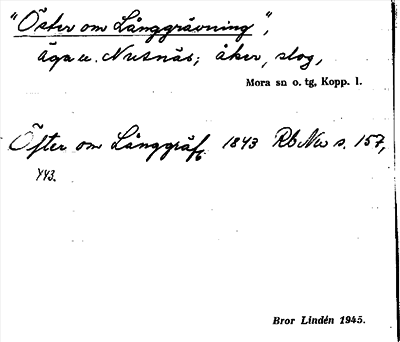 "Öster om Långgrävning",
äga u. Nusnäs; åker, slog,
Mora sn o. tg, Kopp. l.
Öfter om Långgräfg. 1843 Rb Nus s. 157,
443.
Bror Lindén 1945.